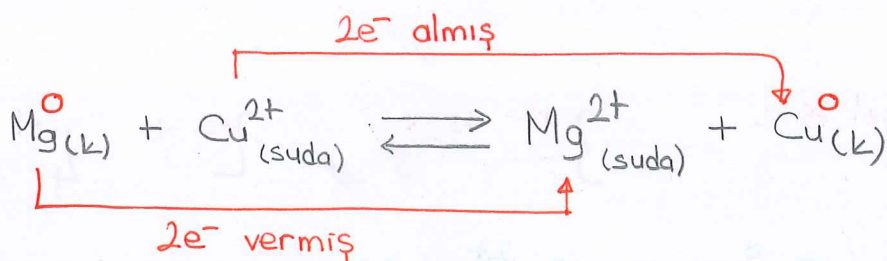 2e⁻ almış
Mg⁰(k) + Cu²⁺(suda) ⇌ Mg²⁺(suda) + Cu⁰(k)
2e⁻ vermiş